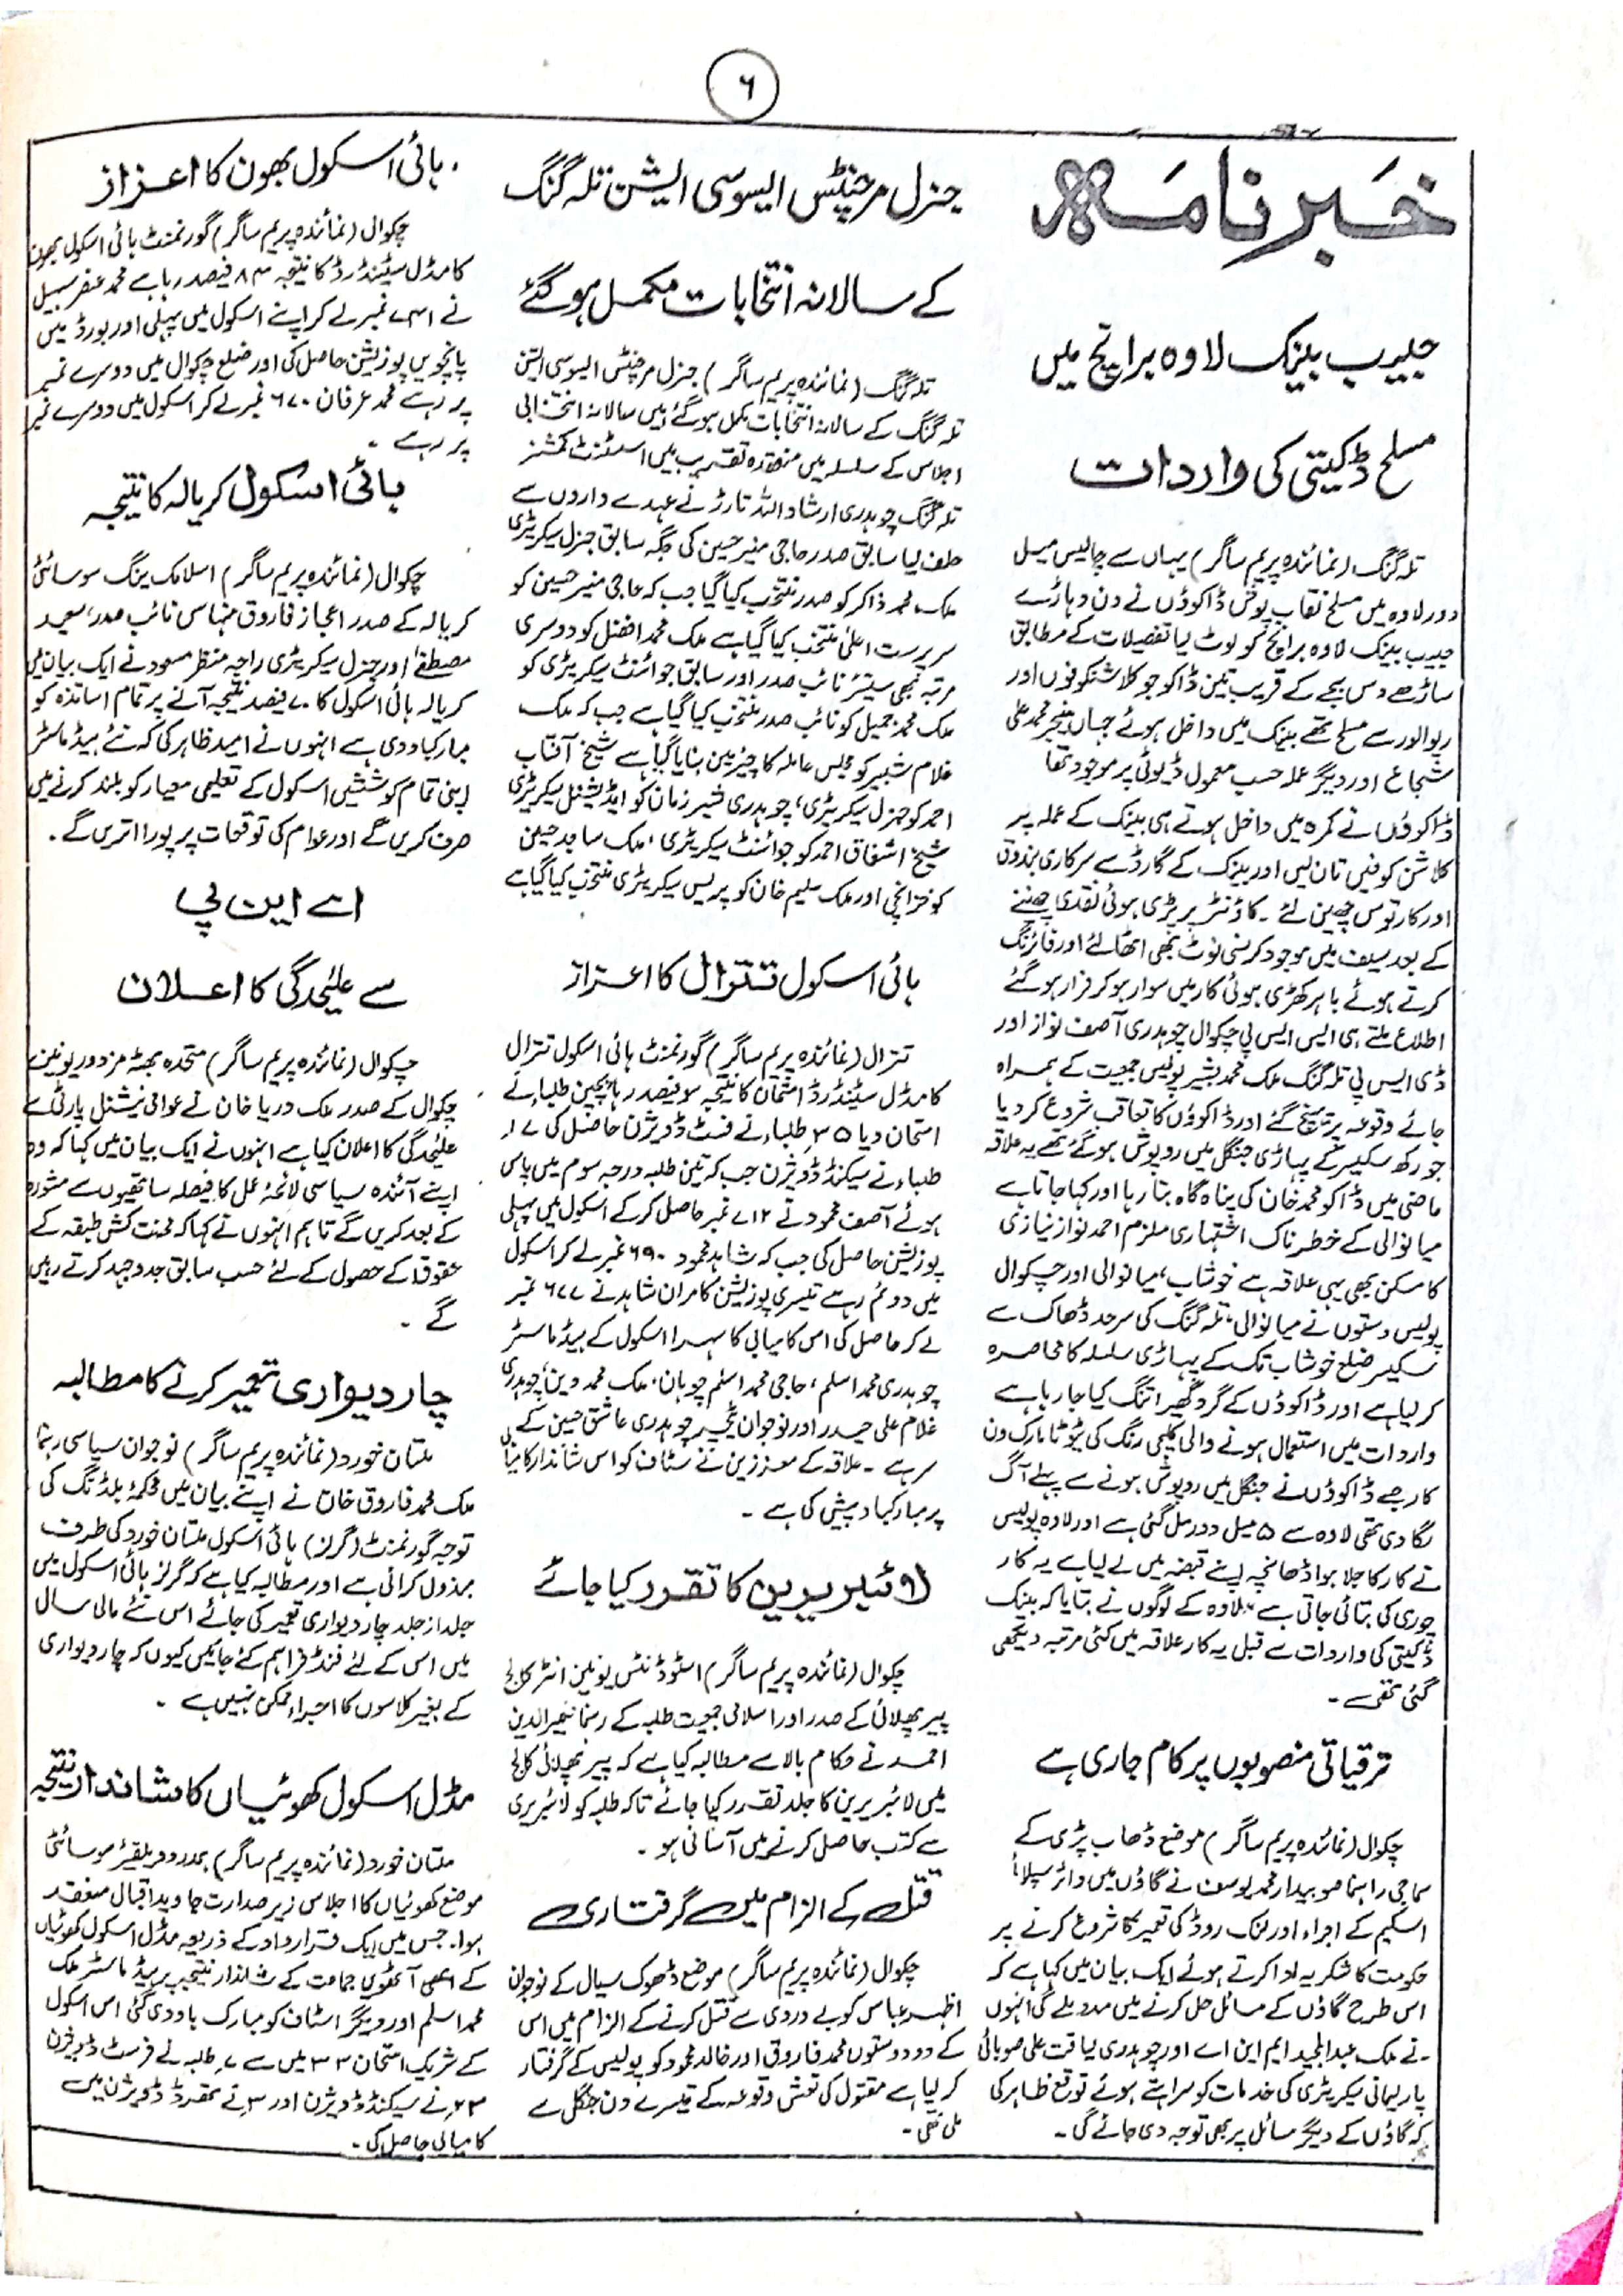 ۶
خبرنامہ
حبیب بینک لاوہ برانچ میں
مسلح ڈکیتی کی واردات
تلہ گنگ (نمائندہ پریم ساگر) یہاں سے چالیس میل
دور لاوہ میں مسلح نقاب پوش ڈاکوؤں نے دن دہاڑے
حبیب بینک لاوہ برانچ کو لوٹ لیا تفصیلات کے مطابق
ساڑھے دس بجے کے قریب تین ڈاکو جو کلاشنکوفوں اور
ریوالور سے مسلح تھے بینک میں داخل ہوئے جہاں منیجر محمد علی
شجاع اور دیگر عملہ حسب معمول ڈیوٹی پر موجود تھا
ڈاکوؤں نے کمرہ میں داخل ہوتے ہی بینک کے عملہ پر
کلاشن کوفیں تان لیں اور بینک کے گارڈ سے سرکاری بندوق
اور کارتوس چھین لئے ۔ کاؤنٹر پر پڑی ہوئی نقدی چھننے
کے بعد سیف میں موجود کرنسی نوٹ بھی اٹھا لئے اور فائرنگ
کرتے ہوئے باہر کھڑی ہوئی کار میں سوار ہو کر فرار ہو گئے
اطلاع ملتے ہی ایس ایس پی چکوال چوہدری آصف نواز اور
ڈی ایس پی تلہ گنگ ملک محمد بشیر پولیس جمعیت کے ہمراہ
جائے وقوعہ پر پہنچ گئے اور ڈاکوؤں کا تعاقب شروع کر دیا
جو رکھ سکیسر کے پہاڑی جنگل میں روپوش ہو گئے تھے یہ علاقہ
ماضی میں ڈاکو محمد خان کی پناہ گاہ بنا رہا اور کہا جاتا ہے
میانوالی کے خطرناک اشتہاری ملزم احمد نواز نیازی
کا مسکن بھی یہی علاقہ ہے خوشاب، میانوالی اور چکوال
پولیس دستوں نے میانوالی، تلہ گنگ کی سرحد ڈھاک سے
سکیسر ضلع خوشاب تک کے پہاڑی سلسلہ کا محاصرہ
کر لیا ہے اور ڈاکوؤں کے گرد گھیرا تنگ کیا جا رہا ہے
واردات میں استعمال ہونے والی کلیجی رنگ کی ٹیوٹا مارک ون
کار جسے ڈاکوؤں نے جنگل میں روپوش ہونے سے پہلے آگ
لگا دی تھی لاوہ سے ۵ میل دور مل گئی ہے اور لاوہ پولیس
نے کار کا جلا ہوا ڈھانچہ اپنے قبضہ میں لے لیا ہے یہ کار
چوری کی بتائی جاتی ہے لاوہ کے لوگوں نے بتایا کہ بینک
ڈکیتی کی واردات سے قبل یہ کار علاقہ میں کئی مرتبہ دیکھی
گئی تھی ۔
ترقیاتی منصوبوں پر کام جاری ہے
چکوال (نمائندہ پریم ساگر) موضع ڈھاب پڑی کے
سماجی راہنما صوبیدار محمد یوسف نے گاؤں میں واٹر سپلائی
اسکیم کے اجراء اور لنک روڈ کی تعمیر کا شروع کرنے پر
حکومت کا شکریہ ادا کرتے ہوئے ایک بیان میں کہا ہے کہ
اس طرح گاؤں کے مسائل حل کرنے میں مدد ملے گی انہوں
نے ملک عبدالمجید ایم این اے اور چوہدری لیاقت علی صوبائی
پارلیمانی سیکریٹری کی خدمات کو سراہتے ہوئے توقع ظاہر کی
کہ گاؤں کے دیگر مسائل پر بھی توجہ دی جائے گی ۔
جنرل مرچنٹس ایسوسی ایشن تلہ گنگ
کے سالانہ انتخابات مکمل ہو گئے
تلہ گنگ (نمائندہ پریم ساگر) جنرل مرچنٹس ایسوسی ایشن
تلہ گنگ کے سالانہ انتخابات مکمل ہو گئے ہیں سالانہ انتخابی
اجلاس کے سلسلہ میں منعقدہ تقریب میں اسسٹنٹ کمشنر
تلہ گنگ چوہدری ارشاد اللہ تارڑ نے عہدے داروں سے
حلف لیا سابق صدر حاجی منیر حسین کی جگہ سابق جنرل سیکریٹری
ملک محمد ذاکر کو صدر منتخب کیا گیا جب کہ حاجی منیر حسین کو
سرپرست اعلیٰ منتخب کیا گیا ہے ملک محمد افضل کو دوسری
مرتبہ بھی سینئر نائب صدر اور سابق جوائنٹ سیکریٹری کو
ملک محمد جمیل کو نائب صدر منتخب کیا گیا ہے جب کہ ملک
غلام شبیر کو مجلس عاملہ کا چیئرمین بنایا گیا ہے شیخ آفتاب
احمد کو جنرل سیکریٹری، چوہدری شیر زمان کو ایڈیشنل سیکریٹری
شیخ اشفاق احمد کو جوائنٹ سیکریٹری، ملک ساجد حسین
کو خزانچی اور ملک سلیم خان کو پریس سیکریٹری منتخب کیا گیا ہے
ہائی اسکول تترال کا اعزاز
تترال (نمائندہ پریم ساگر) گورنمنٹ ہائی اسکول تترال
کا مڈل سٹینڈرڈ امتحان کا نتیجہ سو فیصد رہا پچپن طلباء نے
امتحان دیا ۳۵ طلباء نے فسٹ ڈویژن حاصل کی ۱۷
طلباء نے سیکنڈ ڈویژن جب کہ تین طلبہ درجہ سوم میں پاس
ہوئے آصف محمود نے ۷۱۲ نمبر حاصل کر کے اسکول میں پہلی
پوزیشن حاصل کی جب کہ شاہد محمود ۶۹۰ نمبر لے کر اسکول
میں دوئم رہے تیسری پوزیشن کامران شاہد نے ۶۷۷ نمبر
لے کر حاصل کی اس کامیابی کا سہرا اسکول کے ہیڈ ماسٹر
چوہدری محمد اسلم، حاجی محمد اسلم چوہان، ملک محمد دین، چوہدری
غلام علی حیدر اور نوجوان ٹیچر چوہدری عاشق حسین کے
سر ہے ۔ علاقہ کے معززین نے سٹاف کو اس شاندار کامیابی
پر مبارکباد پیش کی ہے ۔
لائبریرین کا تقرر کیا جائے
چکوال (نمائندہ پریم ساگر) اسٹوڈنٹس یونین انٹر کالج
پیر پھلائی کے صدر اور اسلامی جمعیت طلبہ کے رہنما نصیر الدین
احمد نے حکام بالا سے مطالبہ کیا ہے کہ پیر پھلائی کالج
میں لائبریرین کا جلد تقرر کیا جائے تاکہ طلبہ کو لائبریری
سے کتب حاصل کرنے میں آسانی ہو ۔
قتل کے الزام میں گرفتاری
چکوال (نمائندہ پریم ساگر) موضع ڈھوک سیال کے نوجوان
اظہر عباس کو بے دردی سے قتل کرنے کے الزام میں اس
کے دو دوستوں محمد فاروق اور خالد محمود کو پولیس کے گرفتار
کر لیا ہے مقتول کی نعش وقوعہ کے تیسرے دن جنگل سے
ملی تھی ۔
ہائی اسکول بھون کا اعزاز
چکوال (نمائندہ پریم ساگر) گورنمنٹ ہائی اسکول بھون
کا مڈل سٹینڈرڈ کا نتیجہ ۸۳ فیصد رہا ہے محمد عنصر سہیل
نے ۷۳۱ نمبر لے کر اپنے اسکول میں پہلی اور بورڈ میں
پانچویں پوزیشن حاصل کی اور ضلع چکوال میں دوسرے نمبر
پر رہے محمد عرفان ۶۷۰ نمبر لے کر اسکول میں دوسرے نمبر
پر رہے ۔
ہائی اسکول کریالہ کا نتیجہ
چکوال (نمائندہ پریم ساگر) اسلامک ینگ سوسائٹی
کریالہ کے صدر اعجاز فاروق منہاس نائب صدر، سعید
مصطفےٰ اور جنرل سیکریٹری راجہ منظر مسعود نے ایک بیان میں
کریالہ ہائی اسکول کا ۷۰ فیصد نتیجہ آنے پر تمام اساتذہ کو
مبارکباد دی ہے انہوں نے امید ظاہر کی کہ نئے ہیڈ ماسٹر
اپنی تمام کوششیں اسکول کے تعلیمی معیار کو بلند کرنے میں
صرف کریں گے اور عوام کی توقعات پر پورا اتریں گے ۔
اے این پی
سے علیٰحدگی کا اعلان
چکوال (نمائندہ پریم ساگر) متحدہ بھٹہ مزدور یونین
چکوال کے صدر ملک دریا خان نے عوامی نیشنل پارٹی سے
علیٰحدگی کا اعلان کیا ہے انہوں نے ایک بیان میں کہا کہ وہ
اپنے آئندہ سیاسی لائحۂ عمل کا فیصلہ ساتھیوں سے مشورہ
کے بعد کریں گے تاہم انہوں نے کہا کہ محنت کش طبقہ کے
حقوق کے حصول کے لئے حسب سابق جدوجہد کرتے رہیں
گے ۔
چار دیواری تعمیر کرنے کا مطالبہ
ملتان خورد (نمائندہ پریم ساگر) نوجوان سیاسی رہنما
ملک محمد فاروق خان نے اپنے بیان میں محکمۂ بلڈنگ کی
توجہ گورنمنٹ (گرلز) ہائی اسکول ملتان خورد کی طرف
مبذول کرائی ہے اور مطالبہ کیا ہے کہ گرلز ہائی اسکول میں
جلد از جلد چار دیواری تعمیر کی جائے اس نئے مالی سال
میں اس کے لئے فنڈ فراہم کئے جائیں کیوں کہ چار دیواری
کے بغیر کلاسوں کا اجراء ممکن نہیں ہے ۔
مڈل اسکول کھوئیاں کا شاندار نتیجہ
ملتان خورد (نمائندہ پریم ساگر) ہمدرد ویلفیئر سوسائٹی
موضع کھوئیاں کا اجلاس زیر صدارت جاوید اقبال منعقد
ہوا۔ جس میں ایک قرارداد کے ذریعہ مڈل اسکول کھوئیاں
کے آٹھویں جماعت کے شاندار نتیجہ پر ہیڈ ماسٹر ملک
محمد اسلم اور دیگر اسٹاف کو مبارک باد دی گئی اس اسکول
کے شریک امتحان ۳۳ میں سے ۷ طلبہ نے فرسٹ ڈویژن
۲۳ نے سیکنڈ ڈویژن اور ۳ نے تھرڈ ڈویژن میں
کامیابی حاصل کی ۔